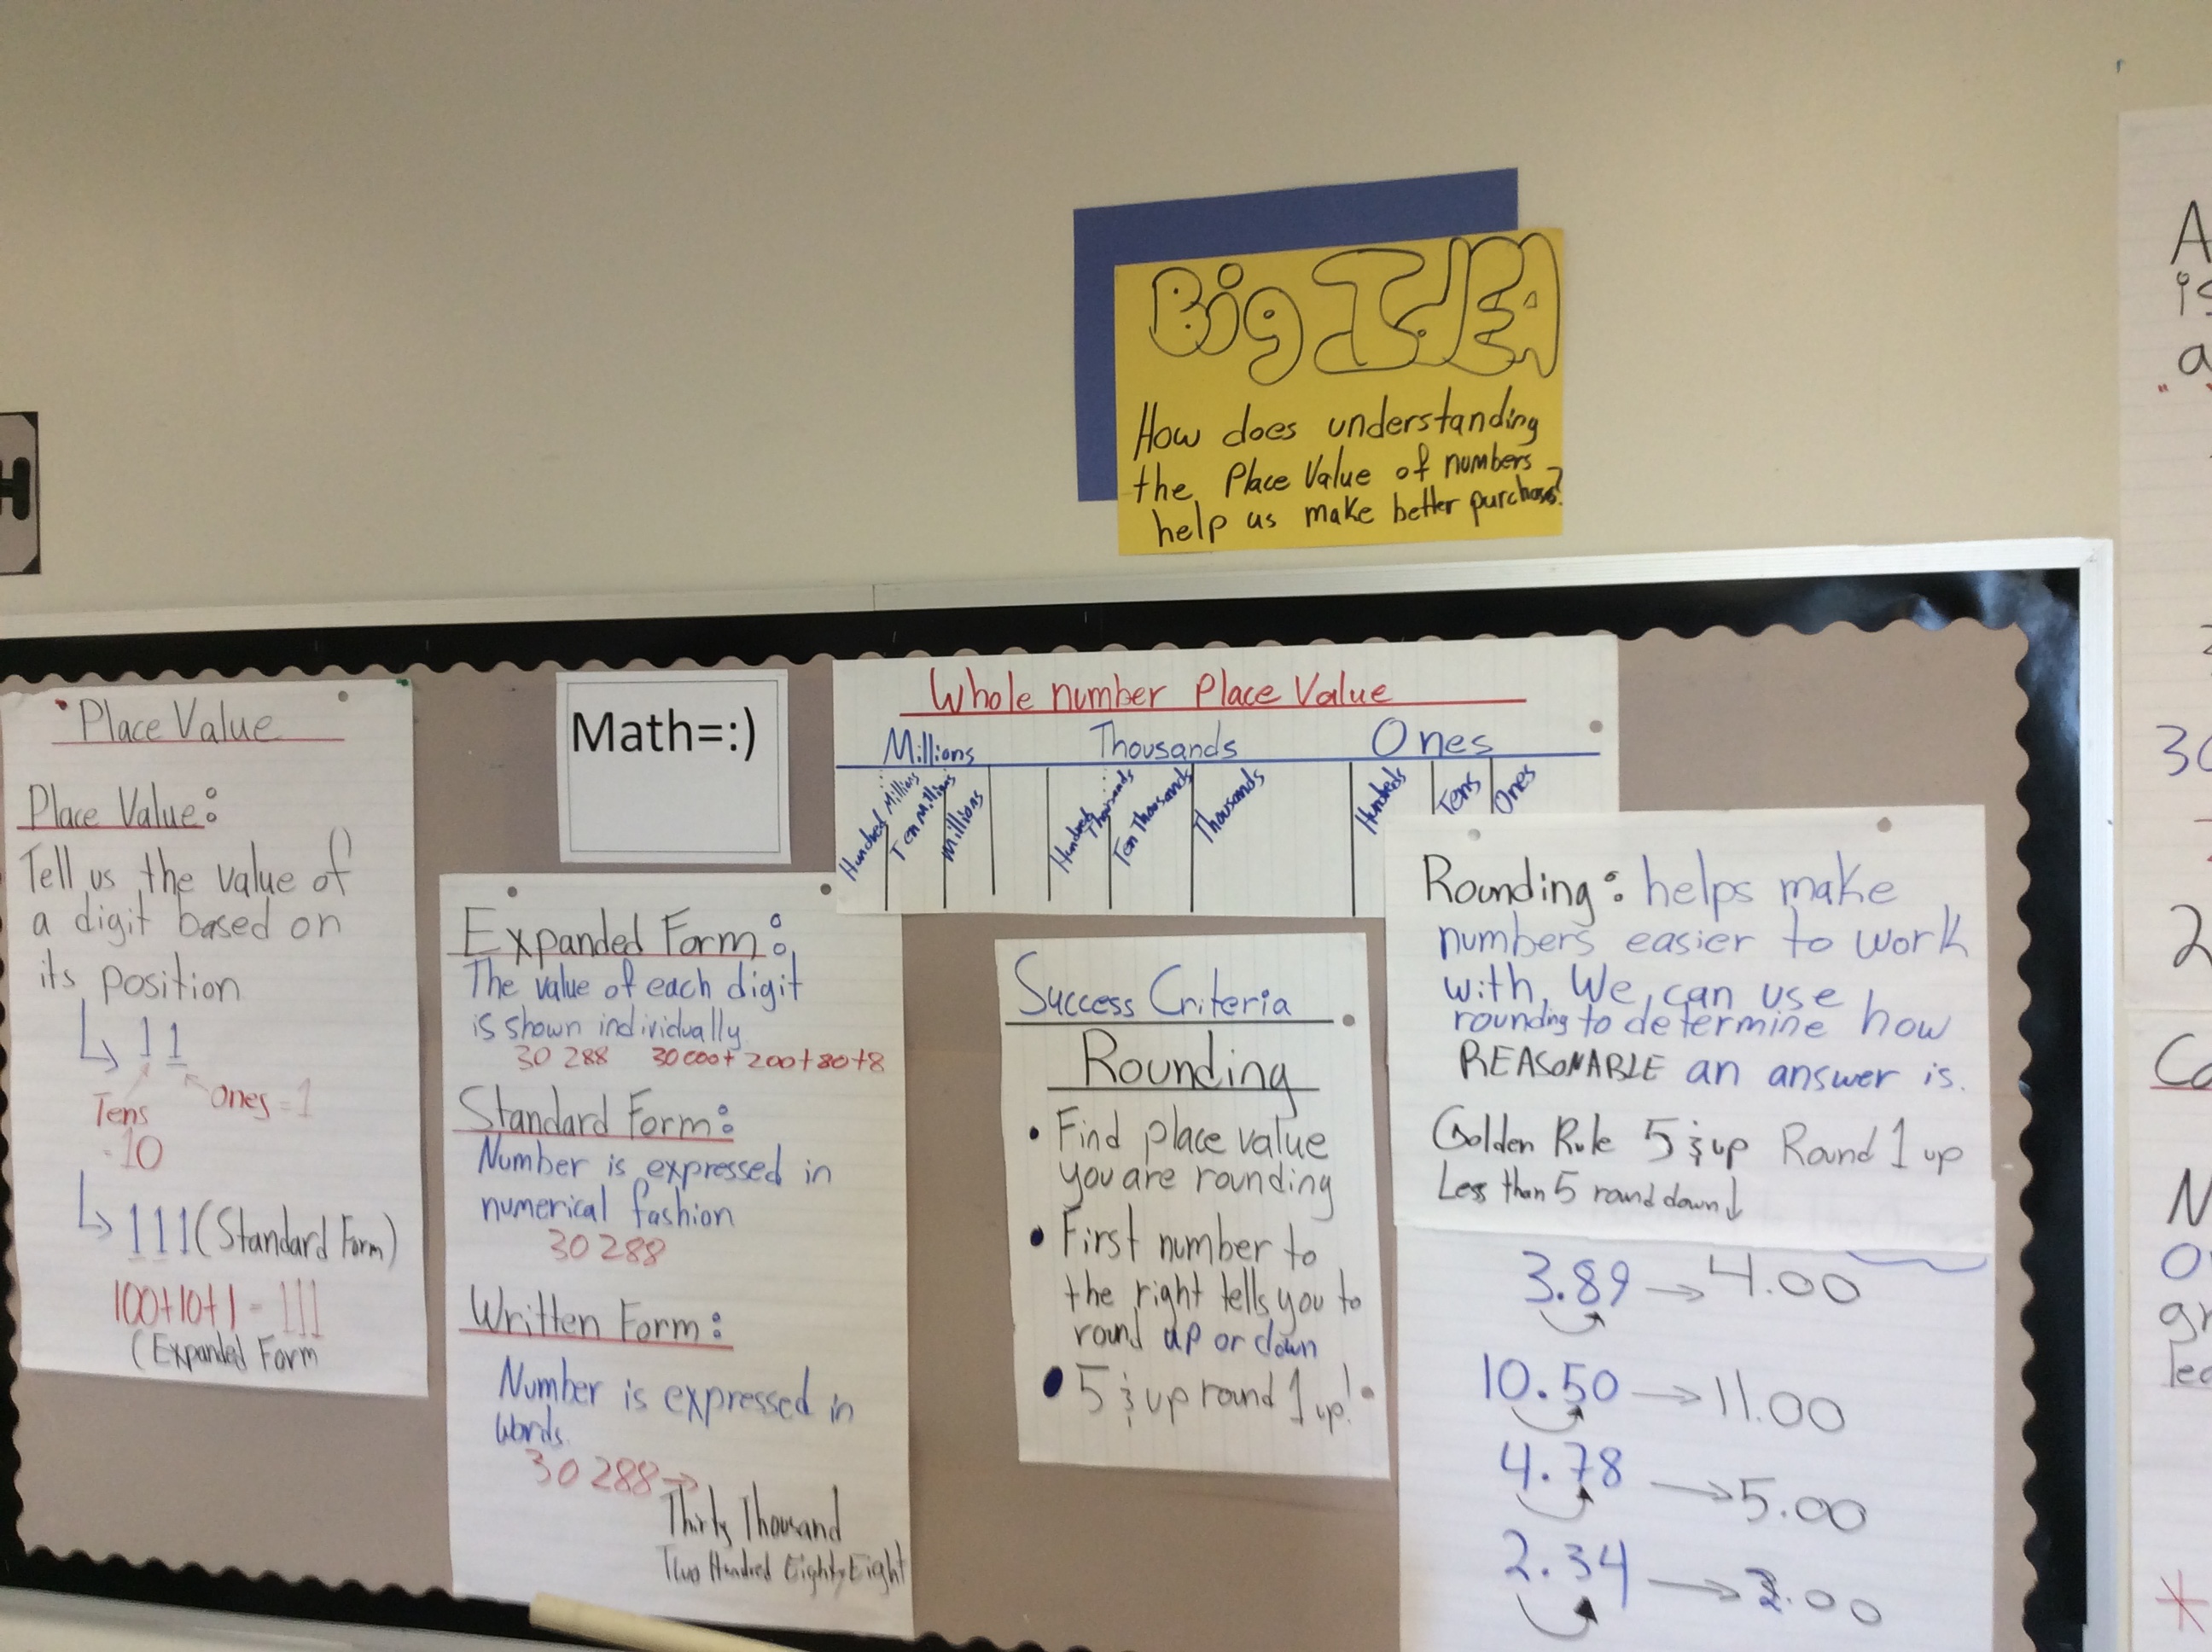 H
Big IdEA
How does understanding
the Place Value of numbers
help us make better purchases?
Place Value
Place Value:
Tell us the value of
a digit based on
its position
11
Tens
=10
Ones = 1
111 (Standard Form)
100+10+1 = 111
(Expanded Form
Math=:)
Expanded Form:
The value of each digit
is shown individually
30 288 30 000+ 200+80+8
Standard Form:
Number is expressed in
numerical fashion
30 288
Written Form:
Number is expressed in
words.
30 288→
Thirty Thousand
Two Hundred Eighty Eight
Whole number Place Value
Millions Thousands Ones
Hundred Millions Ten Millions Millions Hundred Thousands Ten Thousands Thousands Hundreds Tens Ones
Success Criteria
Rounding
• Find place value
you are rounding
• First number to
the right tells you to
round up or down
• 5 & up round 1 up!
Rounding: helps make
numbers easier to work
with. We can use
rounding to determine how
REASONABLE an answer is.
Golden Rule 5 & up Round 1 up
Less than 5 round down↓
3.89 → 4.00
10.50 → 11.00
4.78 → 5.00
2.34 → 2.00